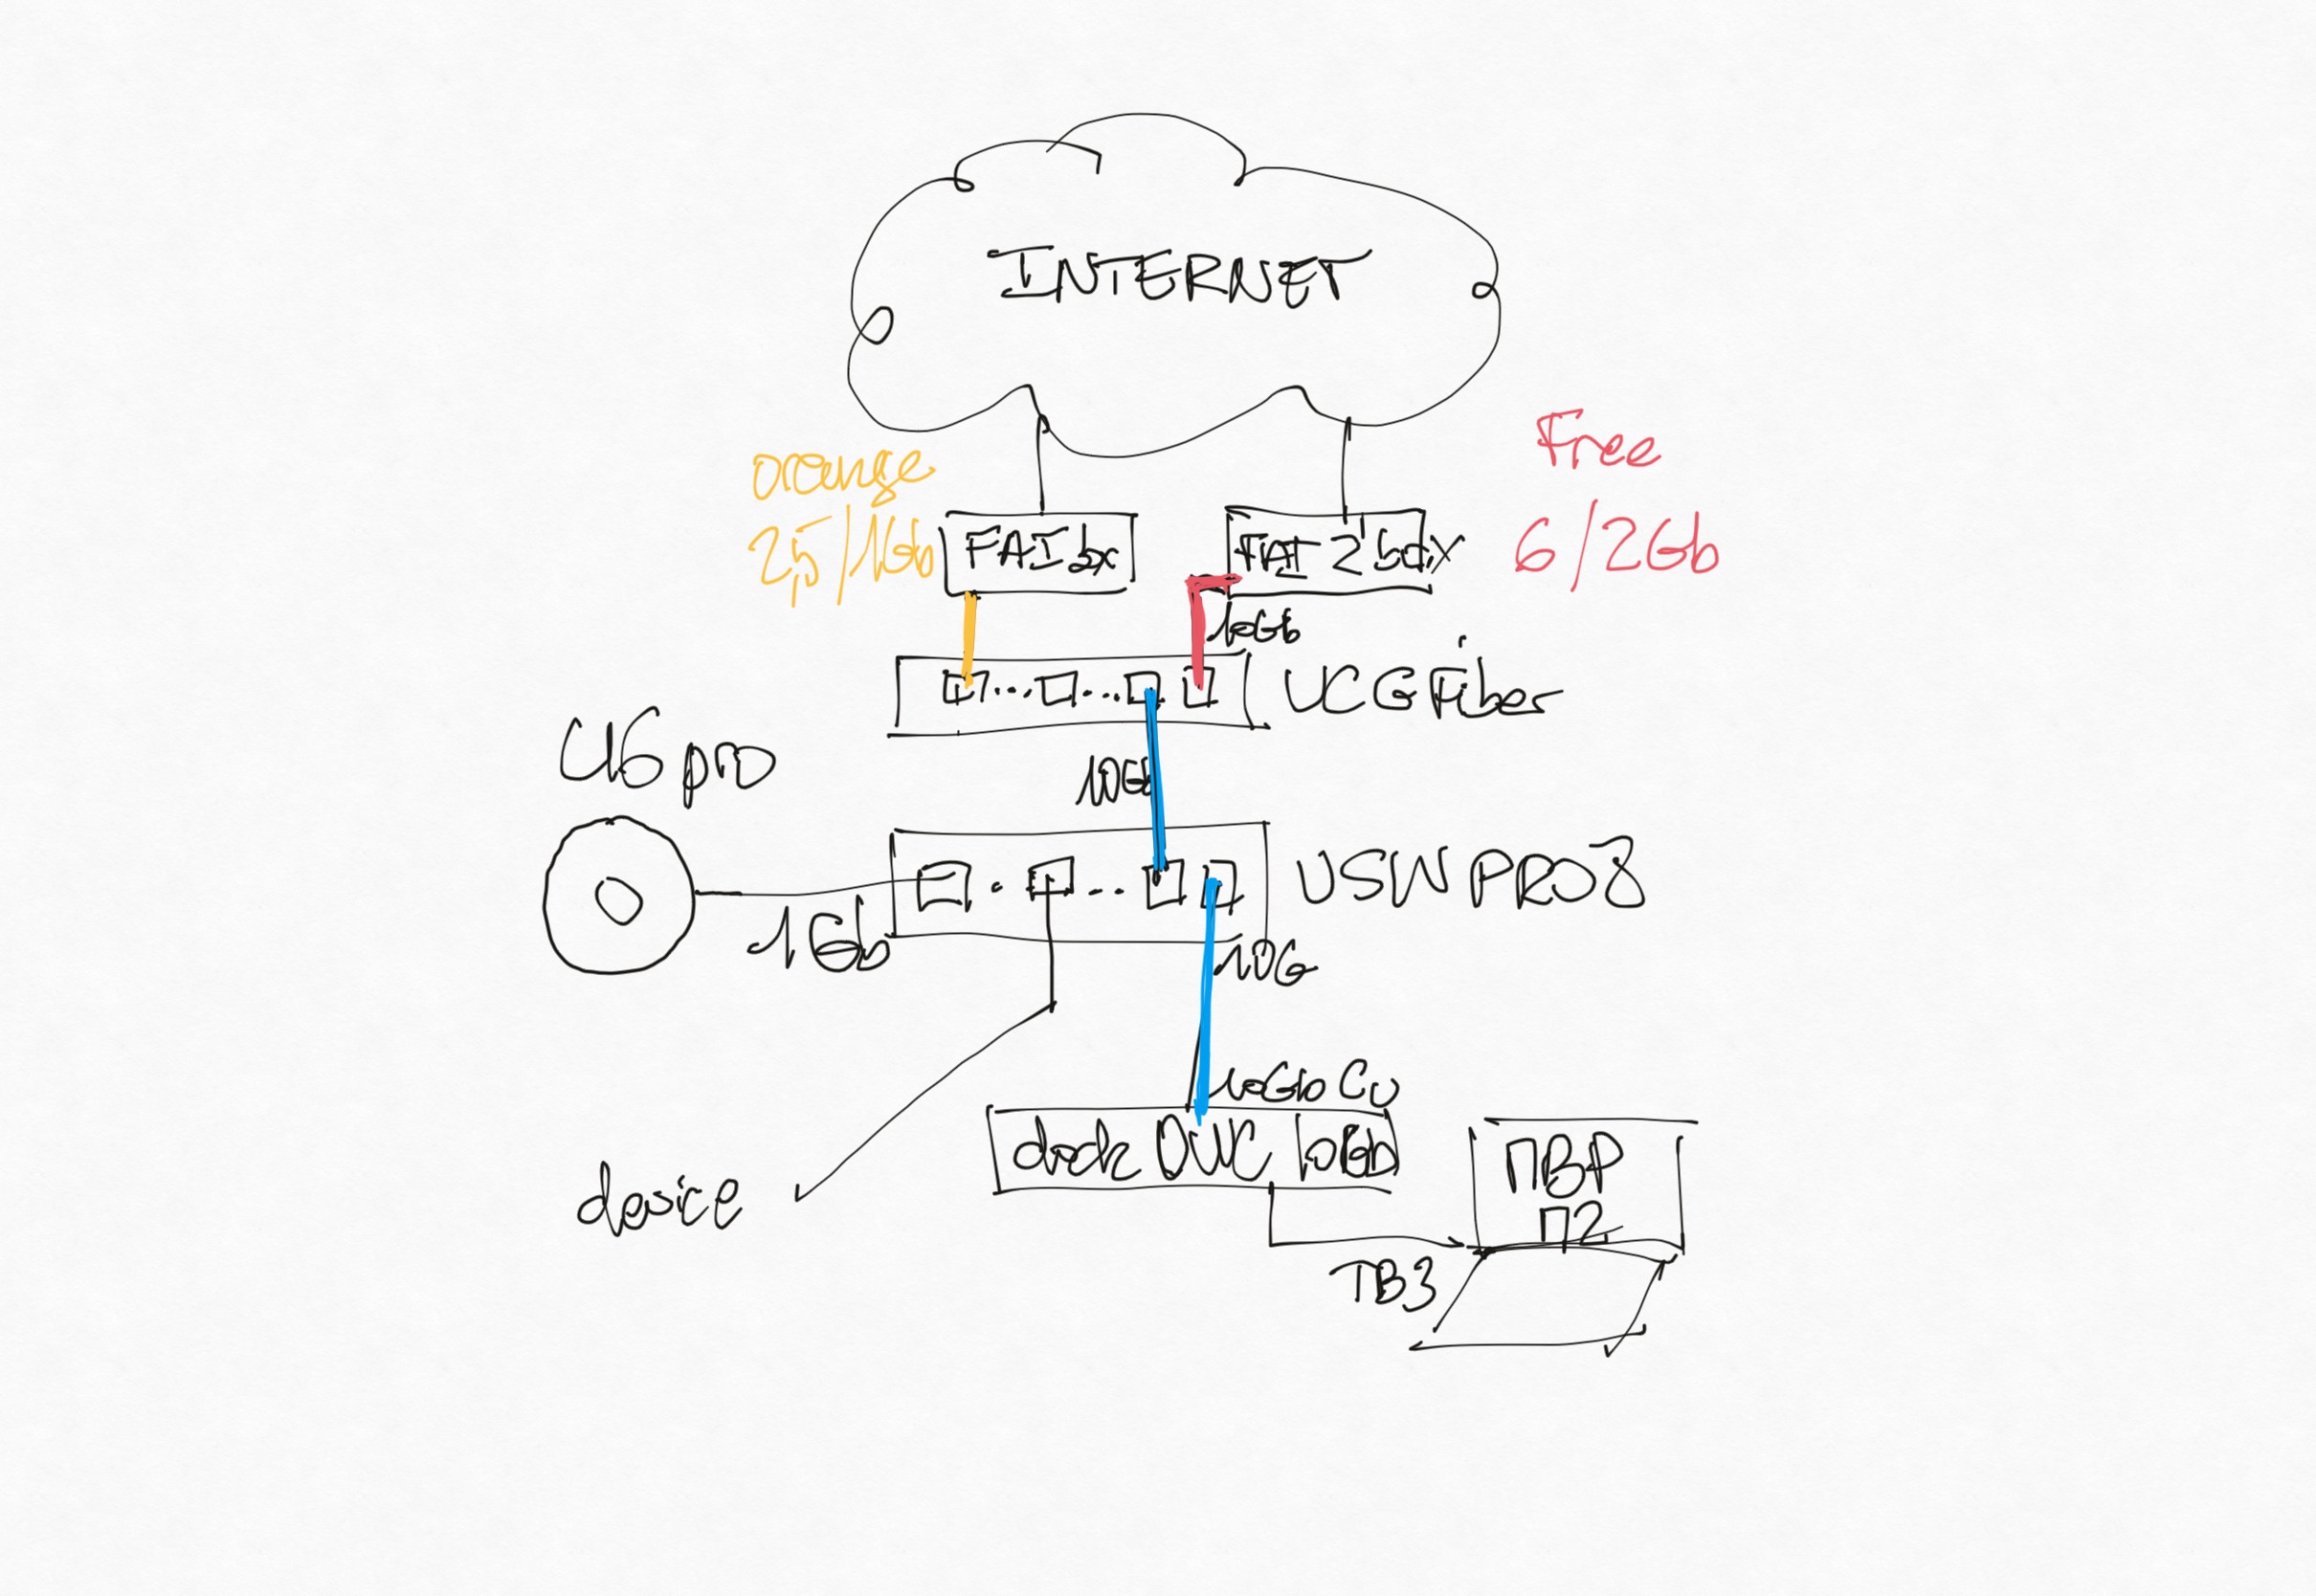 INTERNET
Free
orange
2,5/1Gb
FAI box
FAI 2 box
6/2Gb
10Gb
UCG Fiber
U6 pro
10Gb
USW PRO 8
1Gb
10G
10Gb Cu
dock OWC 10Gb
device
MBP
M2
TB3